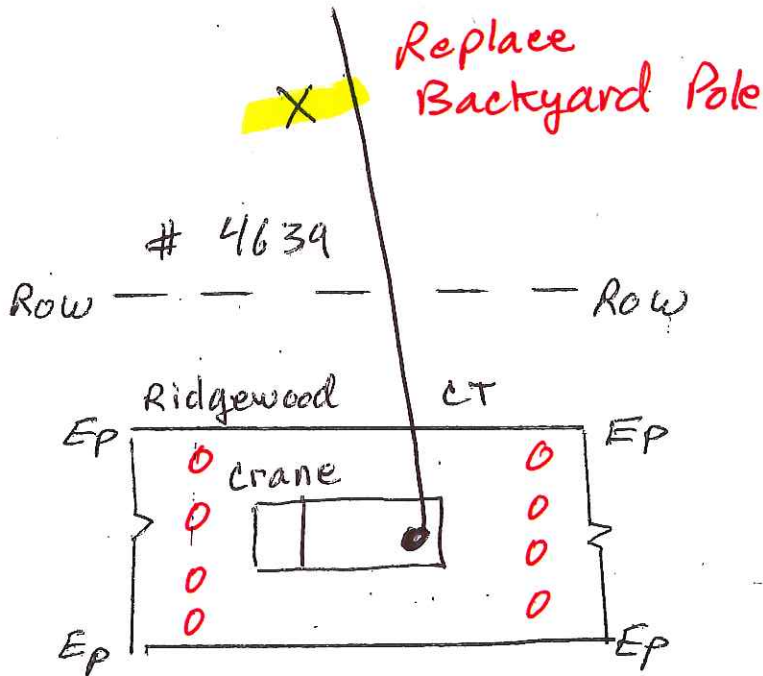 Replace
Backyard Pole
X
# 4639
Row Row
Ridgewood CT
Ep Ep
Crane
Ep Ep